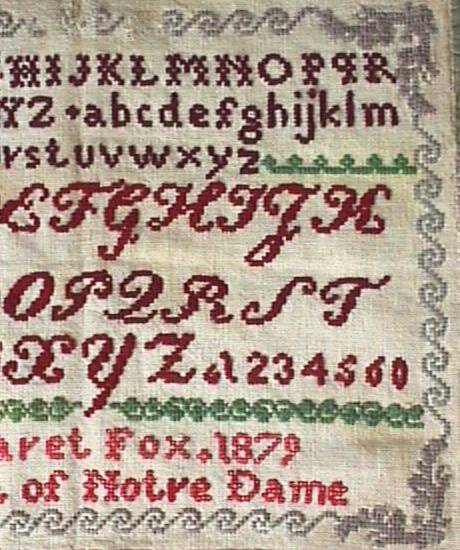 HIJKLMNOPQR
YZ abcdefghijklm
rstuvwxyz
EFGHIJK
OPQRST
XYZ &1234560
aret Fox. 1879
. of Notre Dame